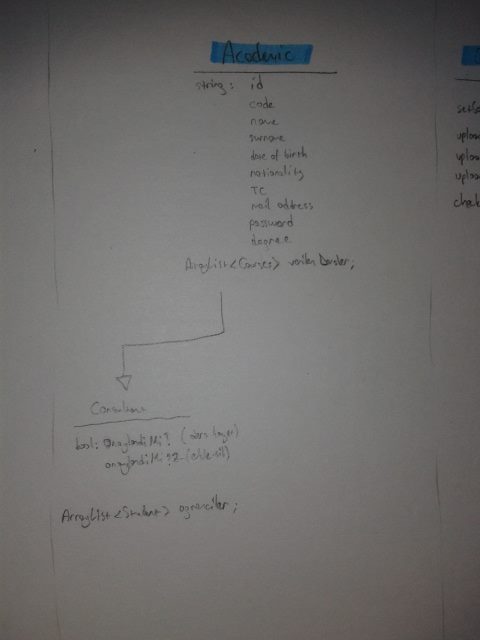 Academic
string: id
code
name
surname
date of birth
nationality
TC
mail address
password
degree
ArrayList<Courses> verilen Dersler;
bool: OnaylandiMi? (ders kayıt)
onaylandiMi?2 (ekle sil)
ArrayList<Student> ogrenciler;
upload
upload
upload
check